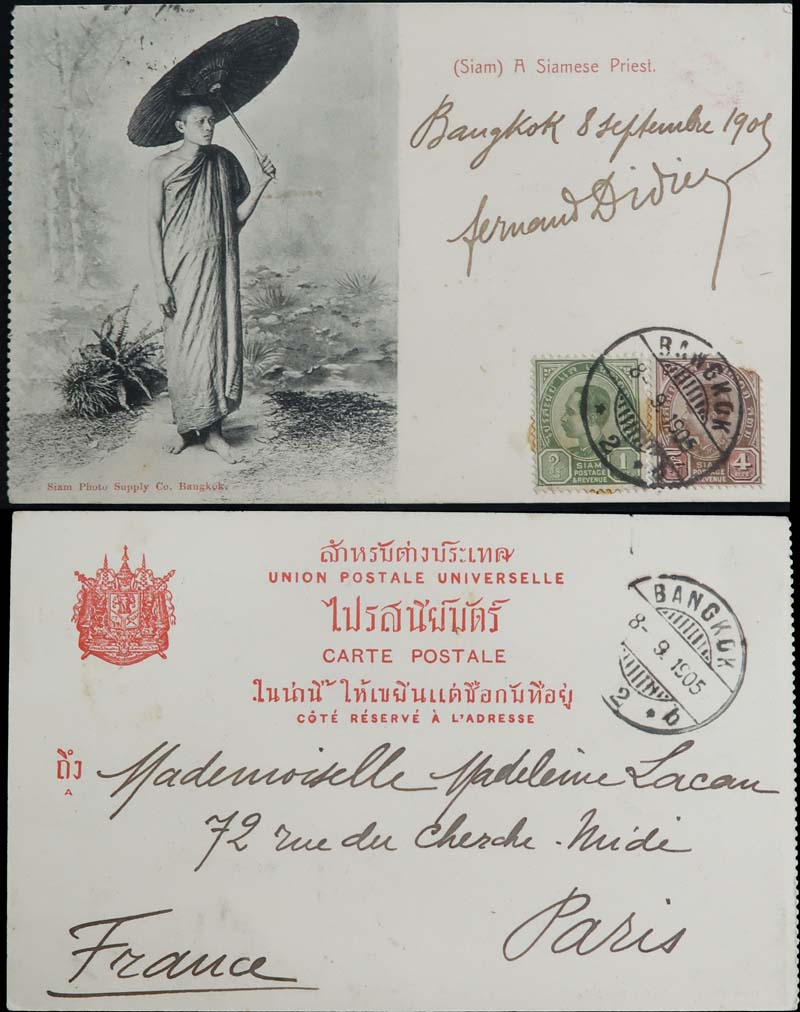 (Siam) A Siamese Priest.
Bangkok 8 septembre 1905
fernand Didier
BANGKOK
8- 9. 1905
2
SIAM
POSTAGE
& REVENUE
2
1
SIAM
POSTAGE
& REVENUE
4
Siam Photo Supply Co. Bangkok.
สำหรับต่างประเทศ
UNION POSTALE UNIVERSELLE
ไปรสนีย์บัตร์
CARTE POSTALE
ในน่านี้ ให้เขยีนแต่ชื่อกับที่อยู่
CÔTÉ RÉSERVÉ À L'ADRESSE
BANGKOK
8- 9. 1905
2 b
ถึง
A
Mademoiselle Madeleine Lacau
72 rue du Cherche-Midi
Paris
France